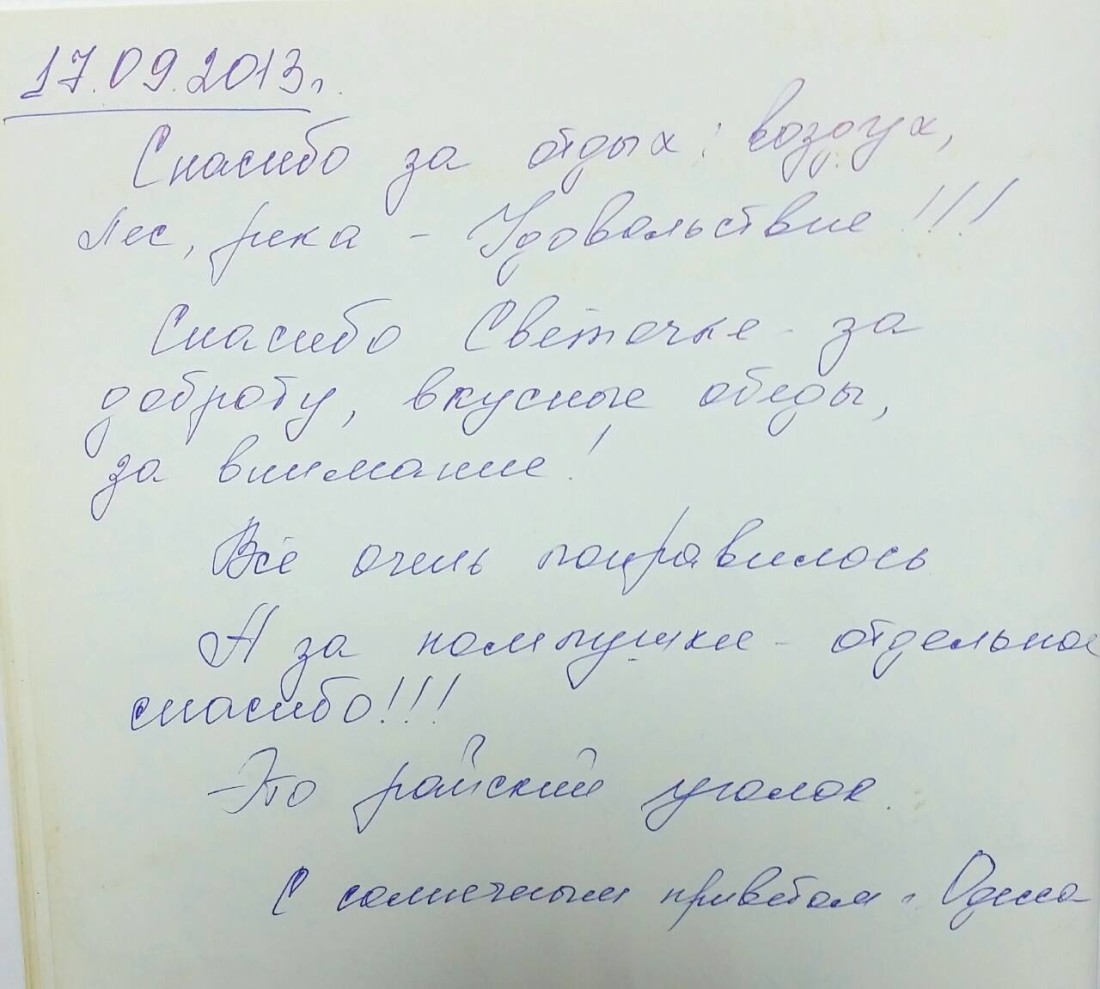 17.09.2013г.
Спасибо за отдых: воздух,
лес, река - Удовольствие!!!
Спасибо Светочке - за
доброту, вкусные обеды,
за внимание!
Всё очень понравилось
А за помпушки - отдельное
спасибо!!!
- Это райский уголок.
С солнечным приветом г. Одесса